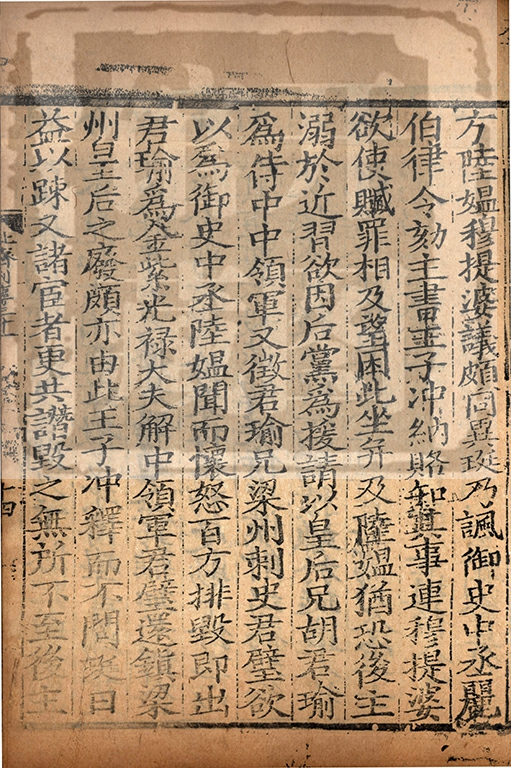 方陸媼穆提婆議頗同異珽乃諷御史中丞麗
伯律令劾主書王子冲納賂知其事連穆提婆
欲使贓罪相及望因此坐并及陸媼猶恐後主
溺於近習欲因后黨為援請以皇后兄胡君瑜
為侍中中領軍又徵君瑜兄梁州刺史君璧欲
以為御史中丞陸媼聞而懷怒百方排毀即出
君瑜為金紫光祿大夫解中領軍君璧還鎮梁
州皇后之廢頗亦由此王子冲釋而不問珽日
益以疎又諸宦者更共譖毀之無所不至後主
十四